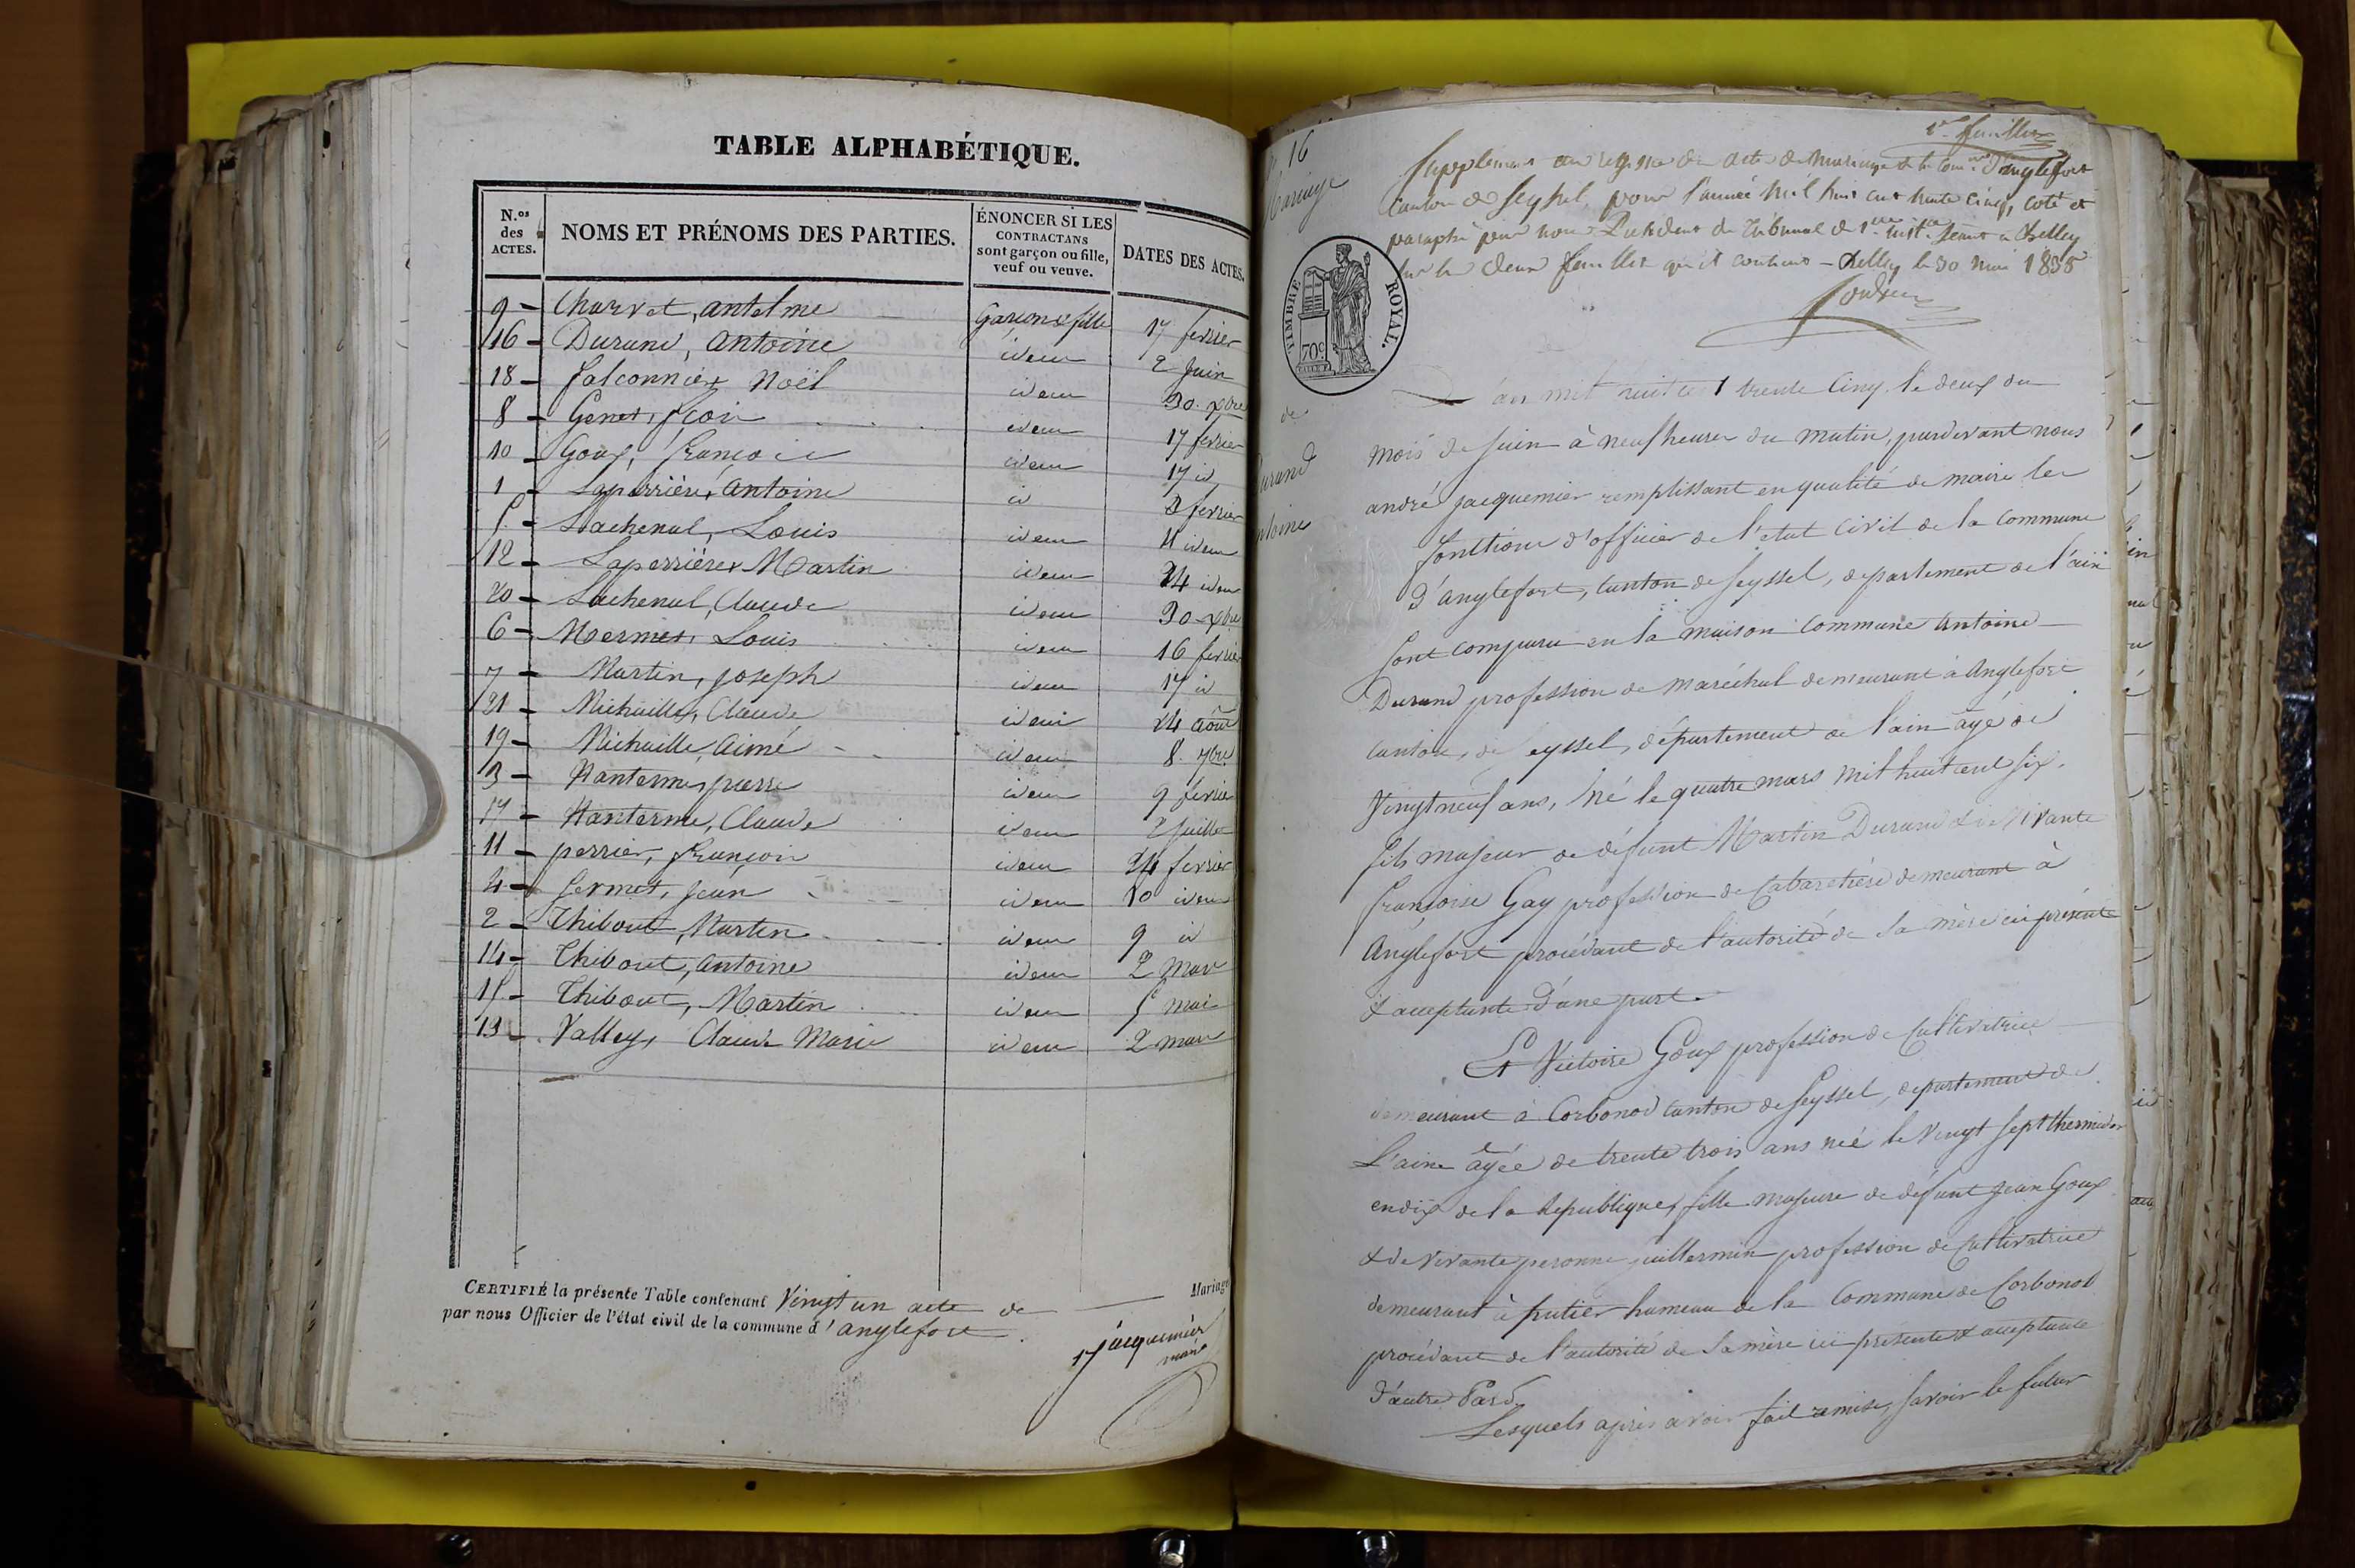 TABLE ALPHABÉTIQUE.
N.os des ACTES.
NOMS ET PRÉNOMS DES PARTIES.
ÉNONCER SI LES CONTRACTANS sont garçon ou fille, veuf ou veuve.
DATES DES ACTES.
9 - Charvet, antelme Garçon & fille 17 fevrier
16 - Durand, Antoine idem 2 Juin
18 - falconnier, Noël idem 30 xbre
8 - Genet, fçois idem 17 fevrier
10 - Goux, françois idem 17 id
1 - Laperrière, Antoine id 3 fevrier
5 - Lachenal, Louis idem 11 idem
12 - Laperrière, Martin idem 24 idem
20 - Lachenal, Claude idem 30 xbre
6 - Mermet, Louis idem 16 fevrier
7 - Martin, joseph idem 17 id
21 - Michaille, Claude idem 24 août
19 - Michaille, Aimé idem 8 7bre
3 - Nanterme, pierre idem 9 fevrier
17 - Nanterme, Claude idem 2 Juillet
11 - perrier, françois idem 24 fevrier
4 - Sermet, Jean idem 10 idem
2 - Thibout, Martin idem 9 id
14 - Thibout, Antoine idem 2 Mars
15 - Thibout, Martin idem 5 Mai
13 - Valley, Claude Marie idem 2 mars
CERTIFIÉ la présente Table contenant Vingt un acte de Mariage
par nous Officier de l'état civil de la commune d'anglefort
jacquemier
maire
1er feuillet
16
Mariage
de
Durand
Antoine
Supplément au registre des actes de mariage de la Comne d'anglefort
Canton de Seyssel, pour l'année mil huit cent trente cinq, coté et
paraphé par nous Président du Tribunal de 1ere inst.ce séant à Belley
sur les deux feuillets qu'il contient - Belley le 30 mai 1835
TIMBRE ROYAL.
70c
L'an mil huit cent trente cinq. le deux du
mois de Juin à neuf heures du matin, pardevant nous
andré jacquemier remplissant en qualité de maire les
fonctions d'officier de l'etat civil de la commune
d'anglefort, canton de Seyssel, departement de l'ain
sont comparu en la maison commune Antoine
Durand profession de maréchal demeurant à Anglefort
canton, de Seyssel, département de l'ain agé de
vingt neuf ans, né le quatre mars mil huit cent six.
fils majeur de défunt Martin Durand & de vivante
françoise Gay profession de Cabaretière demeurant à
Anglefort procédant de l'autorité de sa mère ici présente
& acceptante d'une part.
Et Victoire Goux profession de Cultivatrice
demeurant à Corbonod canton de Seyssel, departement de
L'ain agée de trente trois ans née le vingt sept thermidor
en dix de la republique, fille majeure de défunt Jean Goux
& de vivante peronne guillermin profession de Cultivatrice
demeurant à hameau de la Commune de Corbonod
procédant de l'autorité de sa mère ici présente & acceptante
d'autre Part.
Lesquels après avoir fait remise, savoir le futur